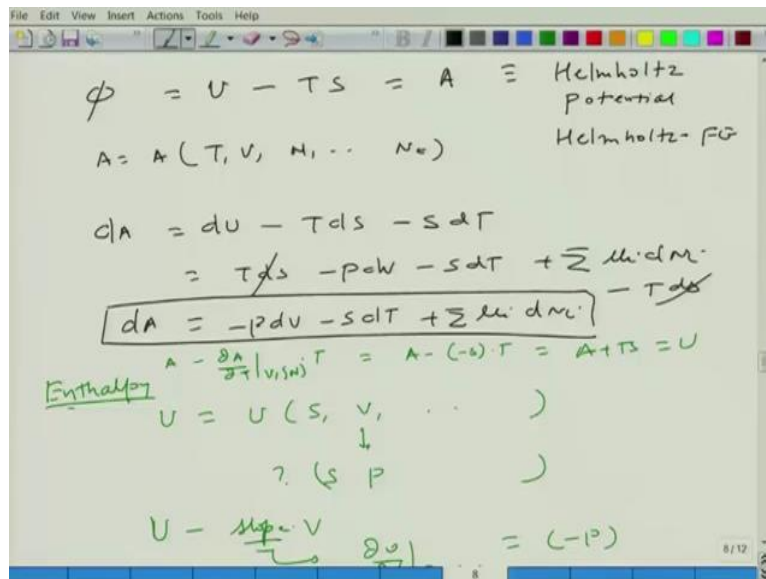 File Edit View Insert Actions Tools Help
φ = U - TS = A ≡ Helmholtz Potential
Helmholtz - FG
A = A (T, V, N, .. Nc)
dA = dU - TdS - SdT
= TdS - PdV - SdT + Σ μi dNi - TdS
dA = -PdV - SdT + Σ μi dNi
A - ∂A/∂T|V,{N} · T = A - (-S) · T = A + TS = U
Enthalpy
U = U (S, V, .. )
↓
? (S P )
U - slope · V
∂U| = (-P)
8/12
8